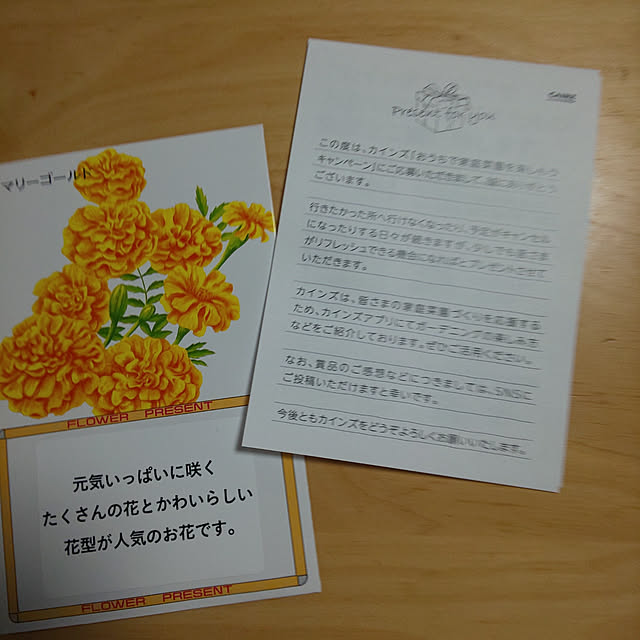 マリーゴールド
FLOWER PRESENT
元気いっぱいに咲く
たくさんの花とかわいらしい
花型が人気のお花です。
FLOWER PRESENT
Present for you
CAINZ
この度は、カインズ「おうちで家庭菜園を楽しもう
キャンペーン」にご応募いただきまして、誠にありがとう
ございます。
行きたかった所へ行けなくなったり、予定がキャンセル
になったりする日々が続きますが、少しでも皆さま
がリフレッシュできる機会になればとプレゼントさせて
いただきます。
カインズは、皆さまの家庭菜園づくりを応援する
ため、カインズアプリにてガーデニングの楽しみ方
などをご紹介しております。ぜひご活用ください。
なお、賞品のご感想などにつきましては、SNSに
ご投稿いただけますと幸いです。
今後ともカインズをどうぞよろしくお願いいたします。